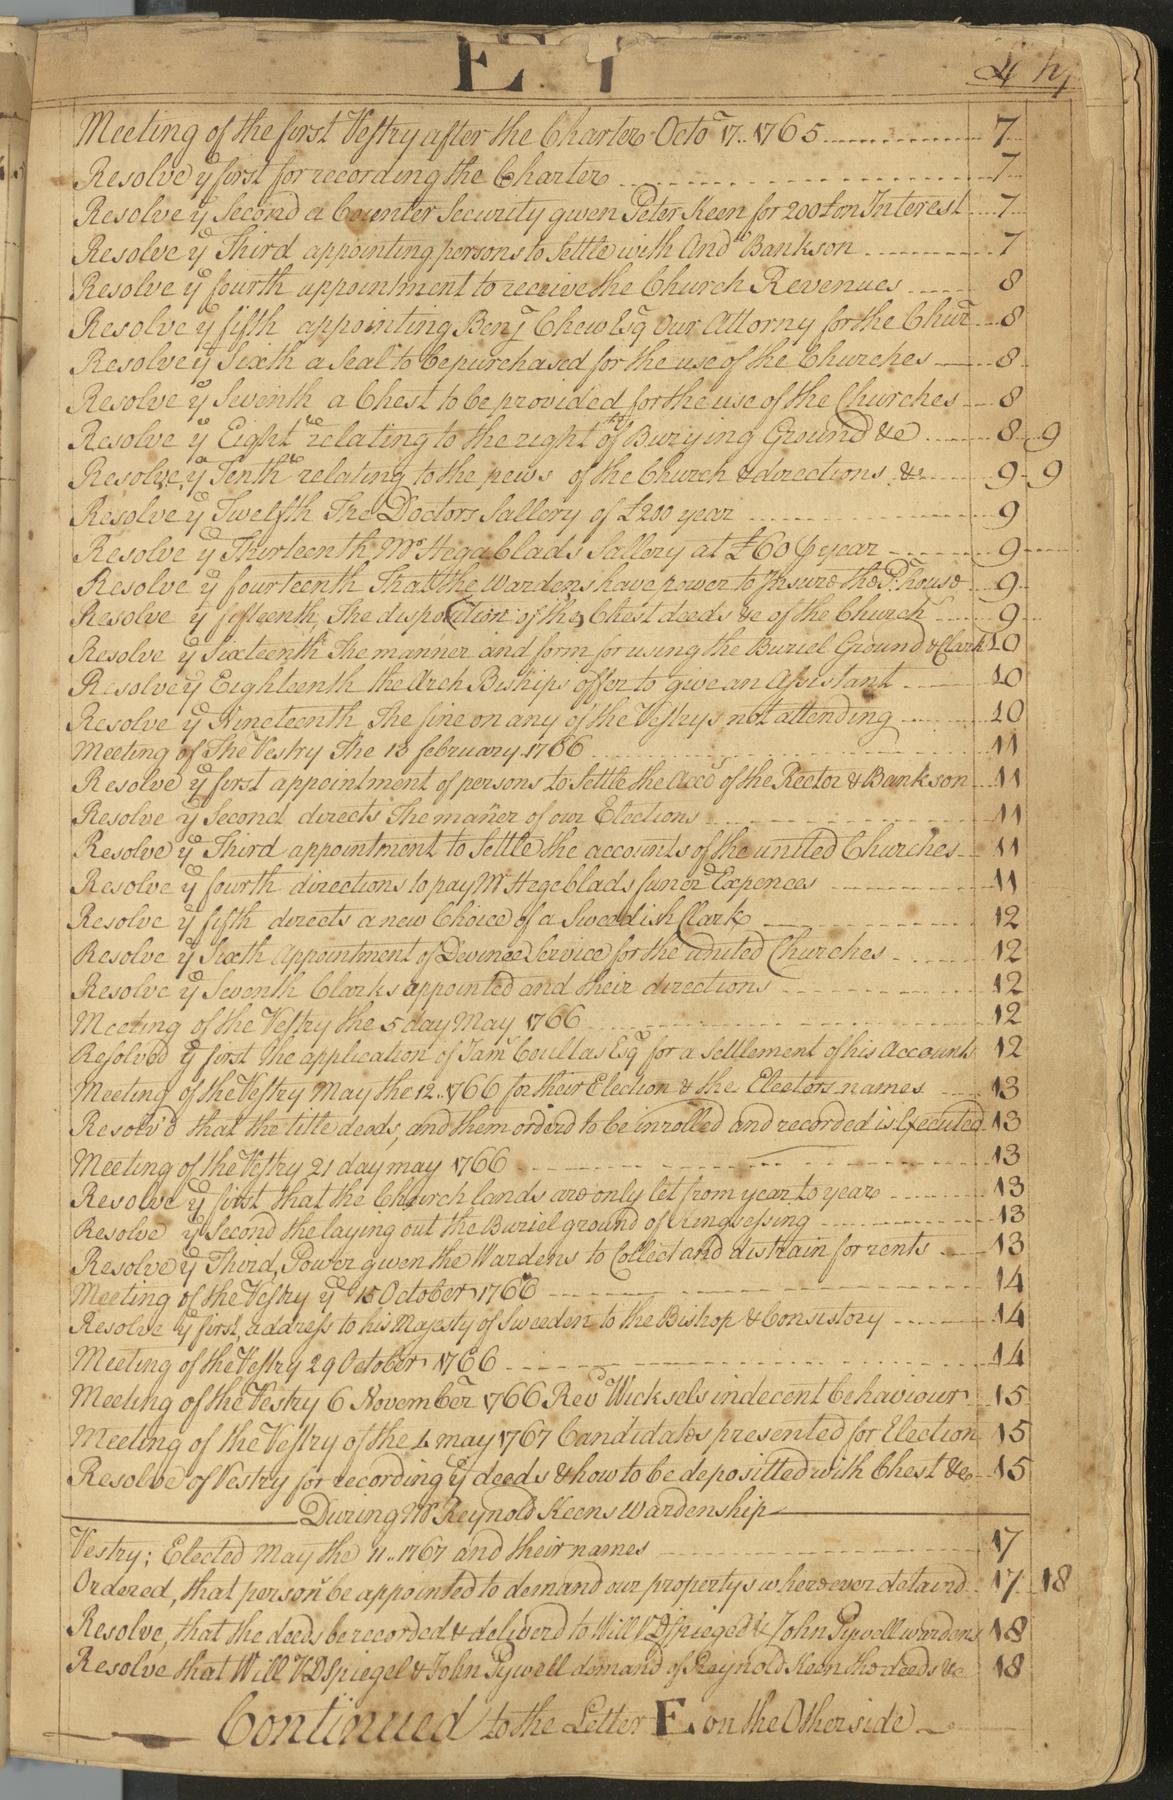 E
Meeting of the first Vestry after the Charter Octor 17.. 1765 7
Resolve ye first for recording the Charter 7
Resolve ye Second a Counter Security given Peter Keen for 200£ on Interest 7
Resolve ye Third appointing persons to settle with Andw Bankson 7
Resolve ye fourth appointment to receive the Church Revenues 8
Resolve ye fifth appointing Benj Chew Esq Our Attorny for the Chur 8
Resolve ye Sixth a Seal to be purchased for the use of the Churches 8
Resolve ye Seventh a Chest to be provided for the use of the Churches 8
Resolve ye Eight &c relating to the right of ye Burying Ground &c 8 9
Resolve ye Tenth &c relating to the pews of the Church & directions &c 9 9
Resolve ye Twelfth The Doctors Sallery of £200 year 9
Resolve ye Thirteenth Mr Hegeblads Sallery at £60 P year 9
Resolve ye fourteenth That the Wardens have power to Insure the P: house 9
Resolve ye fifteenth, The disposition of the Chest deeds &c of the Church 9
Resolve ye Sixteenth The manner and form for using the Buriel Ground & Clark 10
Resolve ye Eighteenth the Arch Biships offer to give an Assistant 10
Resolve ye Nineteenth The fine on any of the Vestrys not attending 10
Meeting of The Vestry The 13 february 1766 11
Resolve ye first appointment of persons to Settle the Accts of the Rector & Bankson 11
Resolve ye Second directs The mañer of our Elections 11
Resolve ye Third appointment to Settle the accounts of the united Churches 11
Resolve ye fourth directions to pay Mr Hegeblads funerl Expences 11
Resolve ye fifth directs a new Choice of a Sweedish Clark 12
Resolve ye Sixth Appointment of Devinee Service for the united Churches 12
Resolve ye Seventh Clarks appointed and their directions 12
Meeting of the Vestry the 5 day May 1766 12
Resolved ye first The application of Jams Coultas Esqr for a Settlement of his Accounts 12
Meeting of the Vestry May the 12.. 1766 for their Election & the Electors names 13
Resolv'd that the title deeds, and them orderd to be inrolled and recorded is Executed 13
Meeting of the Vestry 21 day may 1766 13
Resolve ye first that the Church lands are only let from year to year 13
Resolve ye Second the laying out the Buriel ground of Kingsessing 13
Resolve ye Third, Power given the Wardens to Collect and distrain for rents 13
Meeting of the Vestry ye 15 October 1766 14
Resolve ye first, address to his Majesty of Sweeden to the Bishop & Consistory 14
Meeting of the Vestry 29 October 1766 14
Meeting of the Vestry 6 November 1766 Revd Wicksels indecent behaviour 15
Meeting of the Vestry of the 4 may 1767 Candidates presented for Election 15
Resolve of Vestry for recording ye deeds & how to be depositted with Chest &c 15
During Mr Reynold Keens Wardenship
Vestry; Elected May the 11.. 1767 and their names 17
Ordered, that person be appointed to demand our propertys wherever detaind 17 18
Resolve, that the deeds be recorded & deliverd to Will VDSpiegel & John Pywell wardens 18
Resolve that Will VDSpiegel & John Pywell demand of Reynold Keen the deeds &c 18
Continued to the Letter F. on the Other side